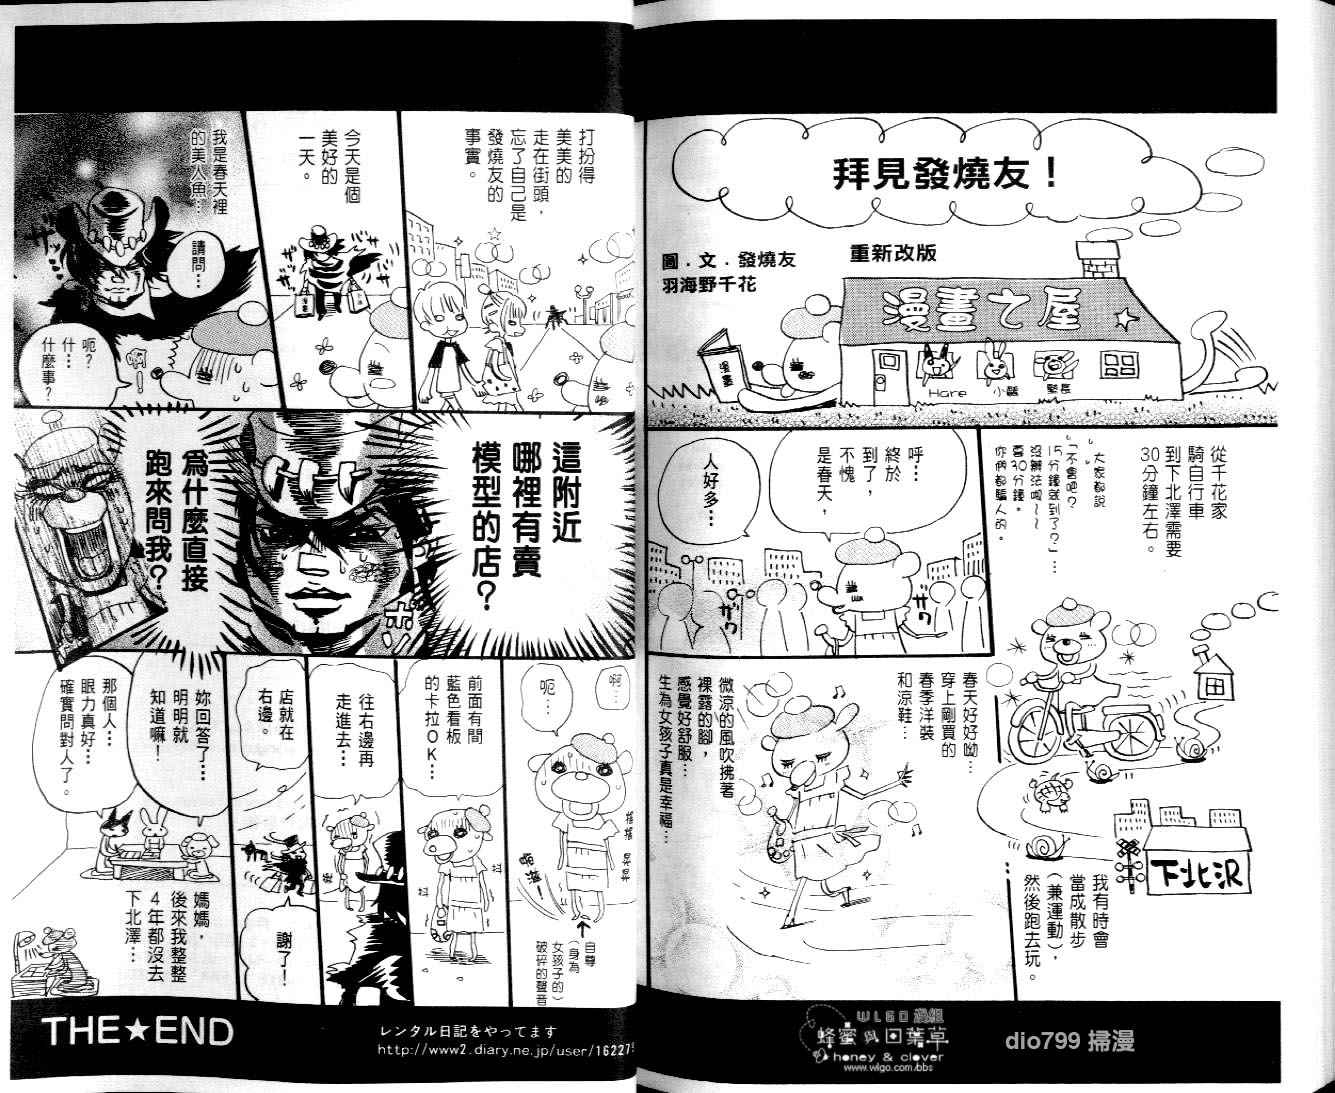 拜見發燒友！
重新改版
圖．文．發燒友
羽海野千花
漫畫之屋
漫畫
Hare
小醫
從千花家
騎自行車
到下北澤需要
30分鐘左右。
大家都說
「不會吧？
15分鐘就到了？」…
沒辦法呢～～
要30分鐘。
你們都騙人的。
呼…
終於
到了，
不愧
是春天，
人好多…
ザワ
ザワ
下北沢
我有時會
當成散步
（兼運動），
然後跑去玩。
春天好好呦…
穿上剛買的
春季洋裝
和涼鞋…
微涼的風吹拂著
裸露的腳，
感覺好舒服…
生為女孩子真是幸福…
打扮得
美美的
走在街頭，
忘了自己是
發燒友的
事實。
今天是個
美好的
一天。
我是春天裡
的美人魚…
請問…
呃？
什…
什麼事？
這附近
哪裡有賣
模型的店？
為什麼直接
跑來問我？
啊…
呃…
自尊
（身為
女孩子的）
破碎的聲音
前面有間
藍色看板
的卡拉OK…
往右邊再
走進去…
店就在
右邊。
謝了！
妳回答了…
明明就
知道嘛！
那個人…
眼力真好…
確實問對人了。
媽媽，
後來我整整
4年都沒去
下北澤…
THE★END
レンタル日記をやってます
http://www2.diary.ne.jp/user/162275
WLGO 漫組
蜂蜜與四葉草
honey & clover
www.wlgo.com/bbs
dio799 掃漫